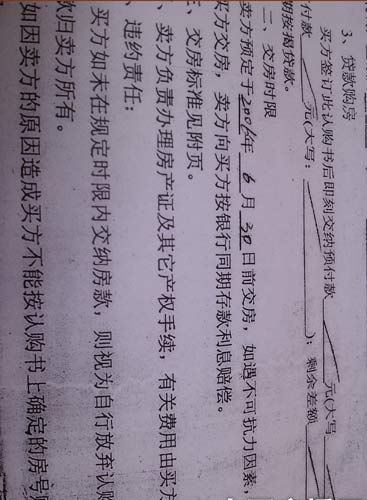 3、贷款购房
买方签订此认购书后即刻交纳预付款 元(大写
付款 元(大写: );剩余差额
期按揭贷款。
二、交房时限
卖方预定于2006年 6 月 30 日前交房,如遇不可抗力因素,
买方交房,卖方向买方按银行同期存款利息赔偿。
、交房标准见附页。
、卖方负责办理房产证及其它产权手续,有关费用由买方
、违约责任:
买方如未在规定时限内交纳房款,则视为自行放弃认购
归卖方所有。
如因卖方的原因造成买方不能按认购书上确定的房号